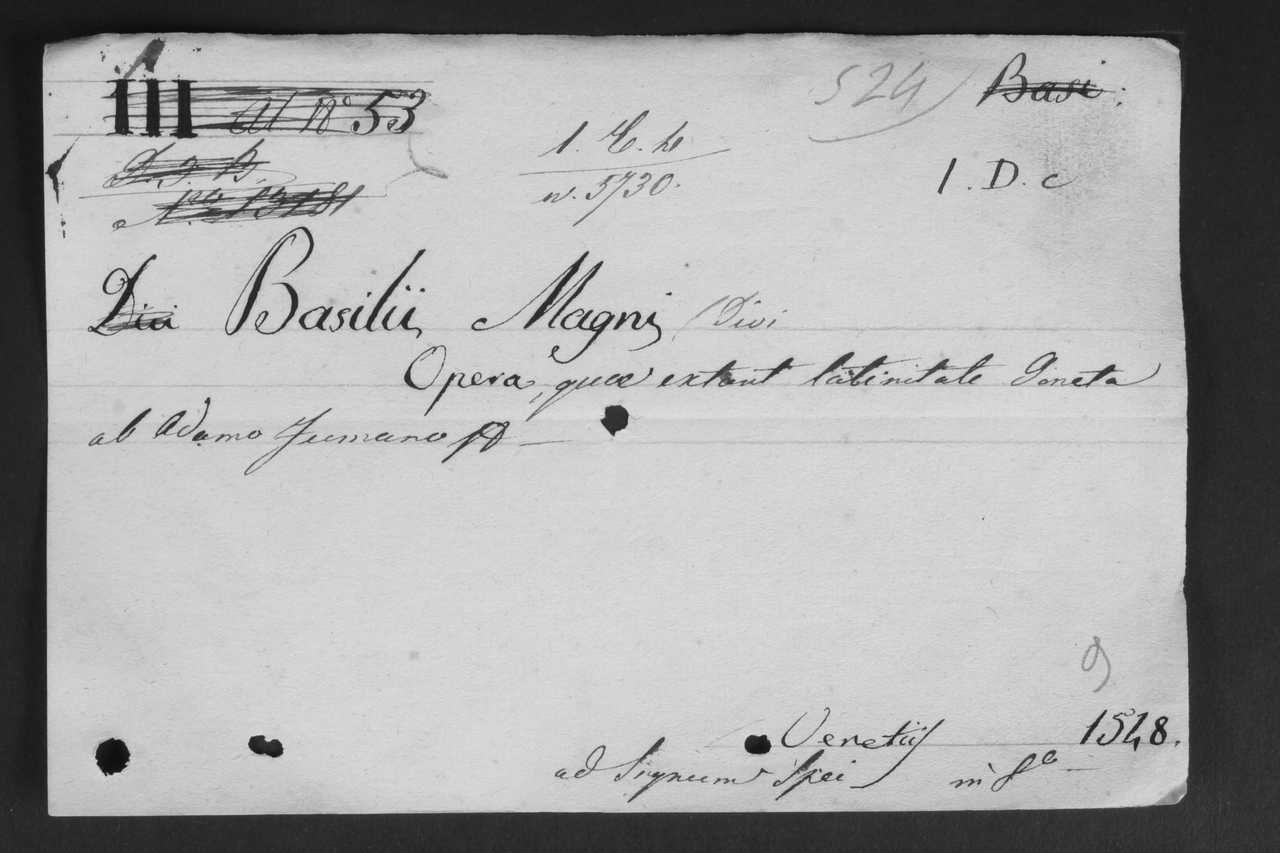 III al Nº 53
524
Basi.
1. C. h
n. 5730.
1. D. c
Nº 13181
Divi Basilii Magni, (Divi
Opera, quae extant latinitate Donata
ab Adamo Fumano
9
Venetiis 1548.
ad Signum Spei in fº